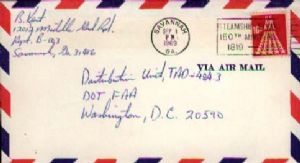 B. Kent
Apt. B-183
Savannah, Ga 31406
SAVANNAH
SEP 1
PM
1969
GA.
STEAMSHIP
150TH
1819
VIA AIR MAIL
Distribution Unit, TAD-484.3
DOT FAA
Washington, D.C. 20590